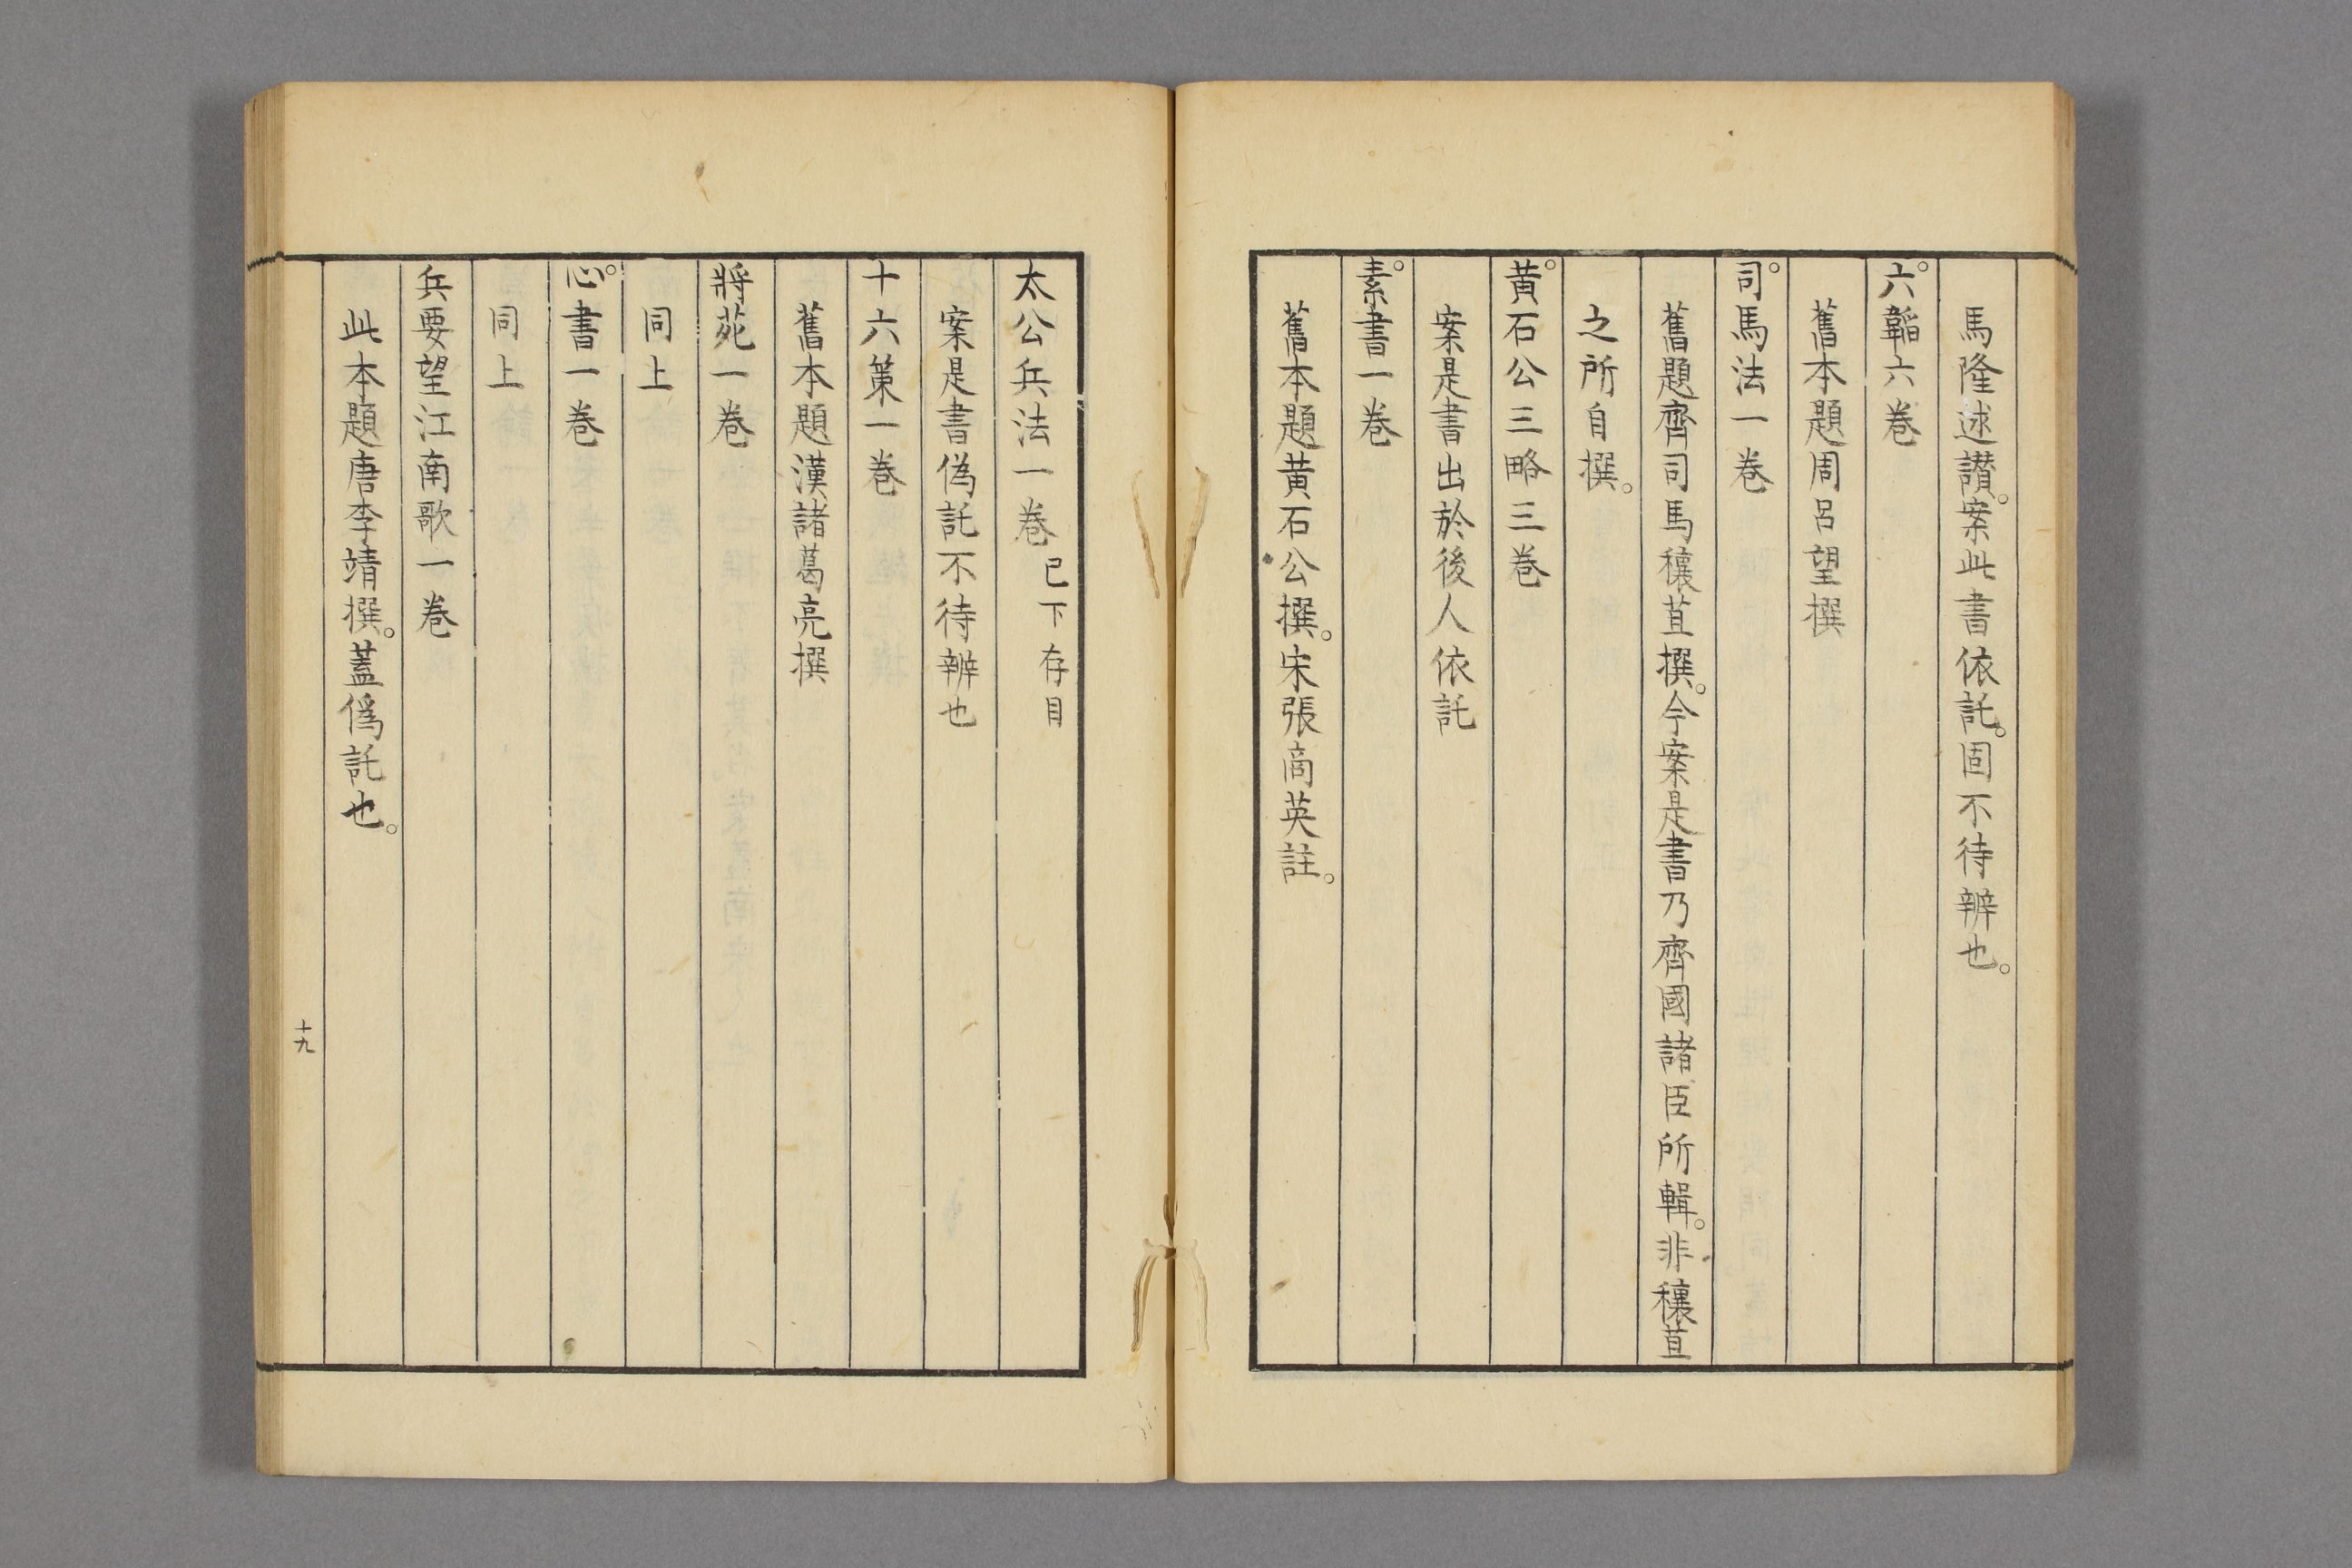 馬隆述讃。案此書依託。固不待辨也。
六韜六卷
舊本題周呂望撰
司馬法一卷
舊題齊司馬穰苴撰。今案是書乃齊國諸臣所輯。非穰苴
之所自撰。
黃石公三略三卷
案是書出於後人依託
素書一卷
舊本題黃石公撰。宋張商英註。
太公兵法一卷 已下存目
案是書偽託不待辨也
十六策一卷
舊本題漢諸葛亮撰
將苑一卷
同上
心書一卷
同上
兵要望江南歌一卷
此本題唐李靖撰。蓋僞託也。
十九